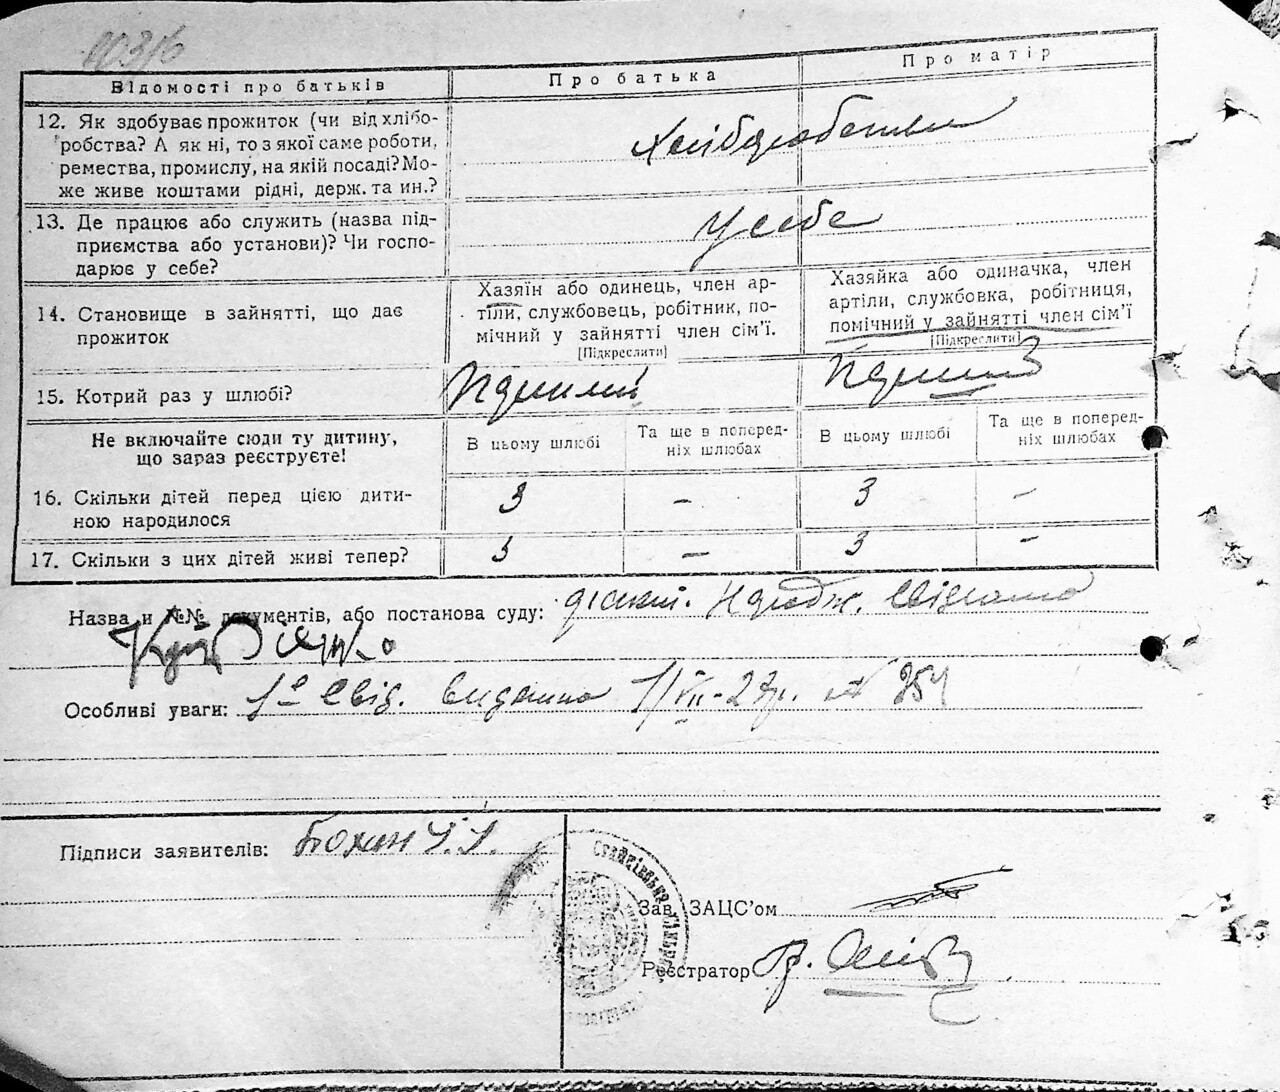 Відомості про батьків
Про батька
Про матір
12. Як здобуває прожиток (чи від хлібо-
робства? А як ні, то з якої саме роботи,
ремества, промислу, на якій посаді? Мо-
же живе коштами рідні, держ. та ин.?
Хліборобством
13. Де працює або служить (назва під-
приємства або установи)? Чи госпо-
дарює у себе?
У себе
14. Становище в зайнятті, що дає
прожиток
Хазяїн або одинець, член ар-
тіли, службовець, робітник, по-
мічний у зайнятті член сім'ї.
[Підкреслити]
Хазяйка або одиначка, член
артіли, службовка, робітниця,
помічний у зайнятті член сім'ї
[Підкреслити]
15. Котрий раз у шлюбі?
Не включайте сюди ту дитину,
що зараз реєструєте!
В цьому шлюбі
Та ще в поперед-
ніх шлюбах
В цьому шлюбі
Та ще в поперед-
ніх шлюбах
16. Скільки дітей перед цією дити-
ною народилося
3 - 3 -
17. Скільки з цих дітей живі тепер?
3 - 3 -
Назва и №№ документів, або постанова суду:
Особливі уваги: 1е свід. видано
Підписи заявителів: Бохан
Зав. ЗАЦС'ом
Реєстратор